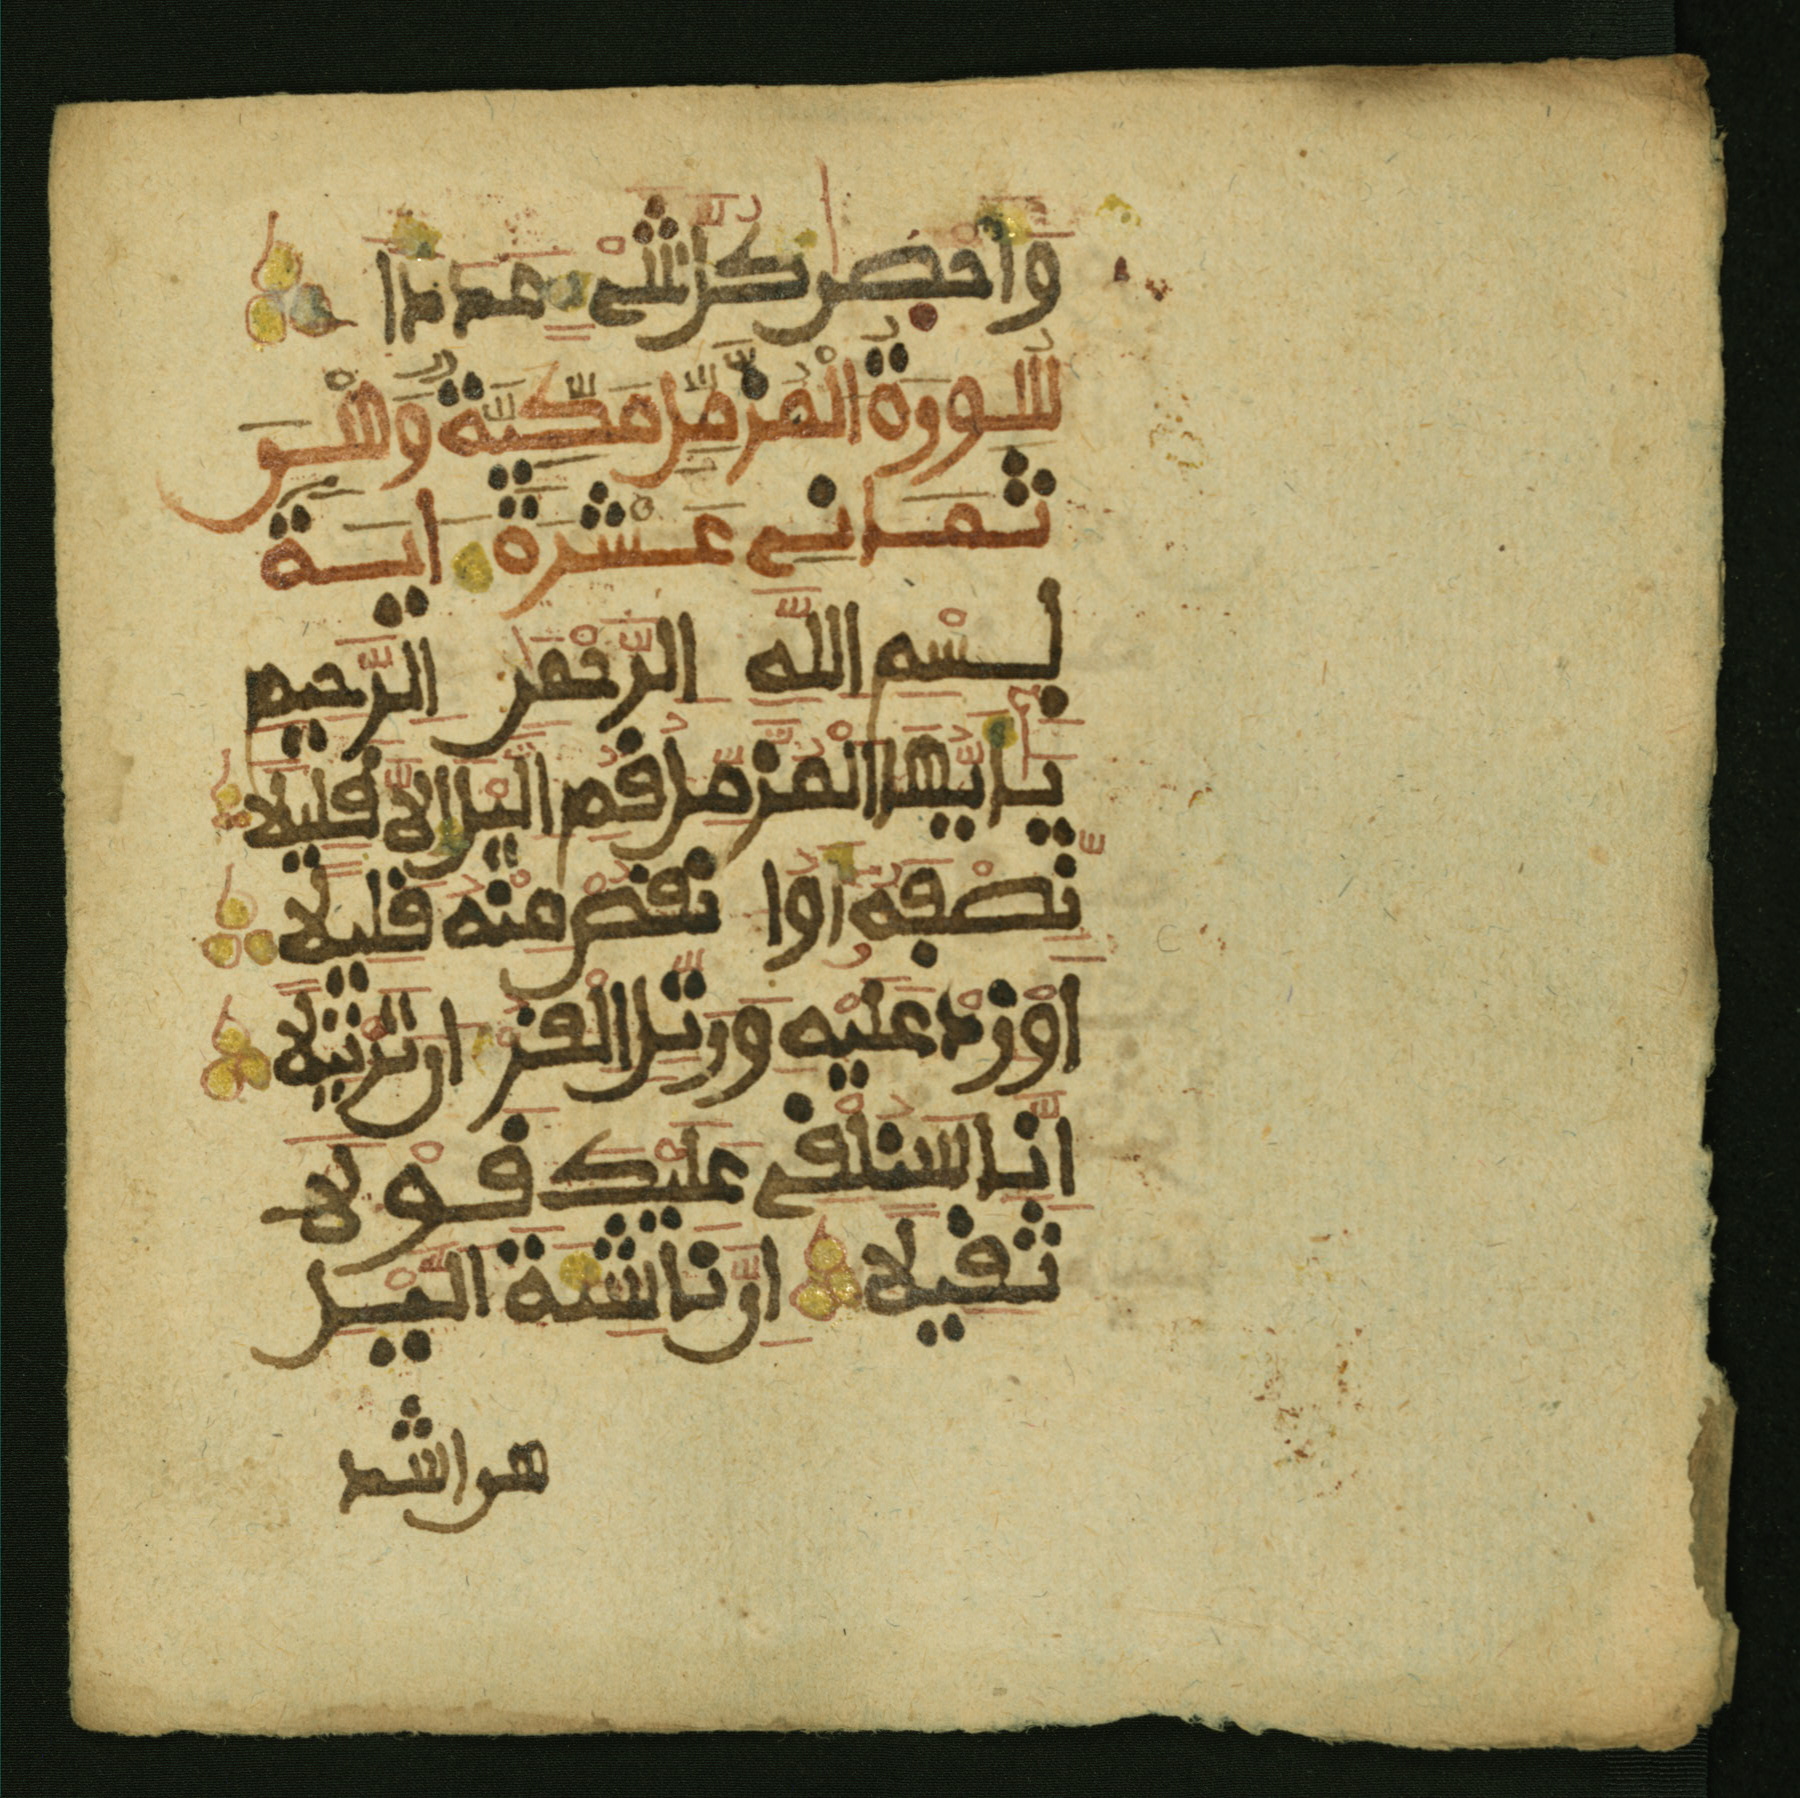 وَأَحْصَىٰ كُلَّ شَيْءٍ عَدَدًا
سُورَةُ الْمُزَّمِّلِ مَكِّيَّةٌ وَهْىَ
ثَمَانِى عَشْرَةَ ايَة
بِسْمِ اللَّهِ الرَّحْمَنِ الرَّحِيمِ
يَٰأَيُّهَا الْمُزَّمِّلُ قُمِ الَّيْلَ إِلَّا قَلِيلًا
نِّصْفَهُ أَوُ ا نقُصْ مِنْهُ قَلِيلًا
اَوْ زِدْ عَلَيْهِ وَرَتِّلِ الْقُرْ انَ تَرْتِيلًا
اِنَّا سَنُلْقِى عَلَيْكَ قَوْلًا
ثَقِيلًا اِنَّ نَاشِئَةَ الَّيْلِ
هى اشد